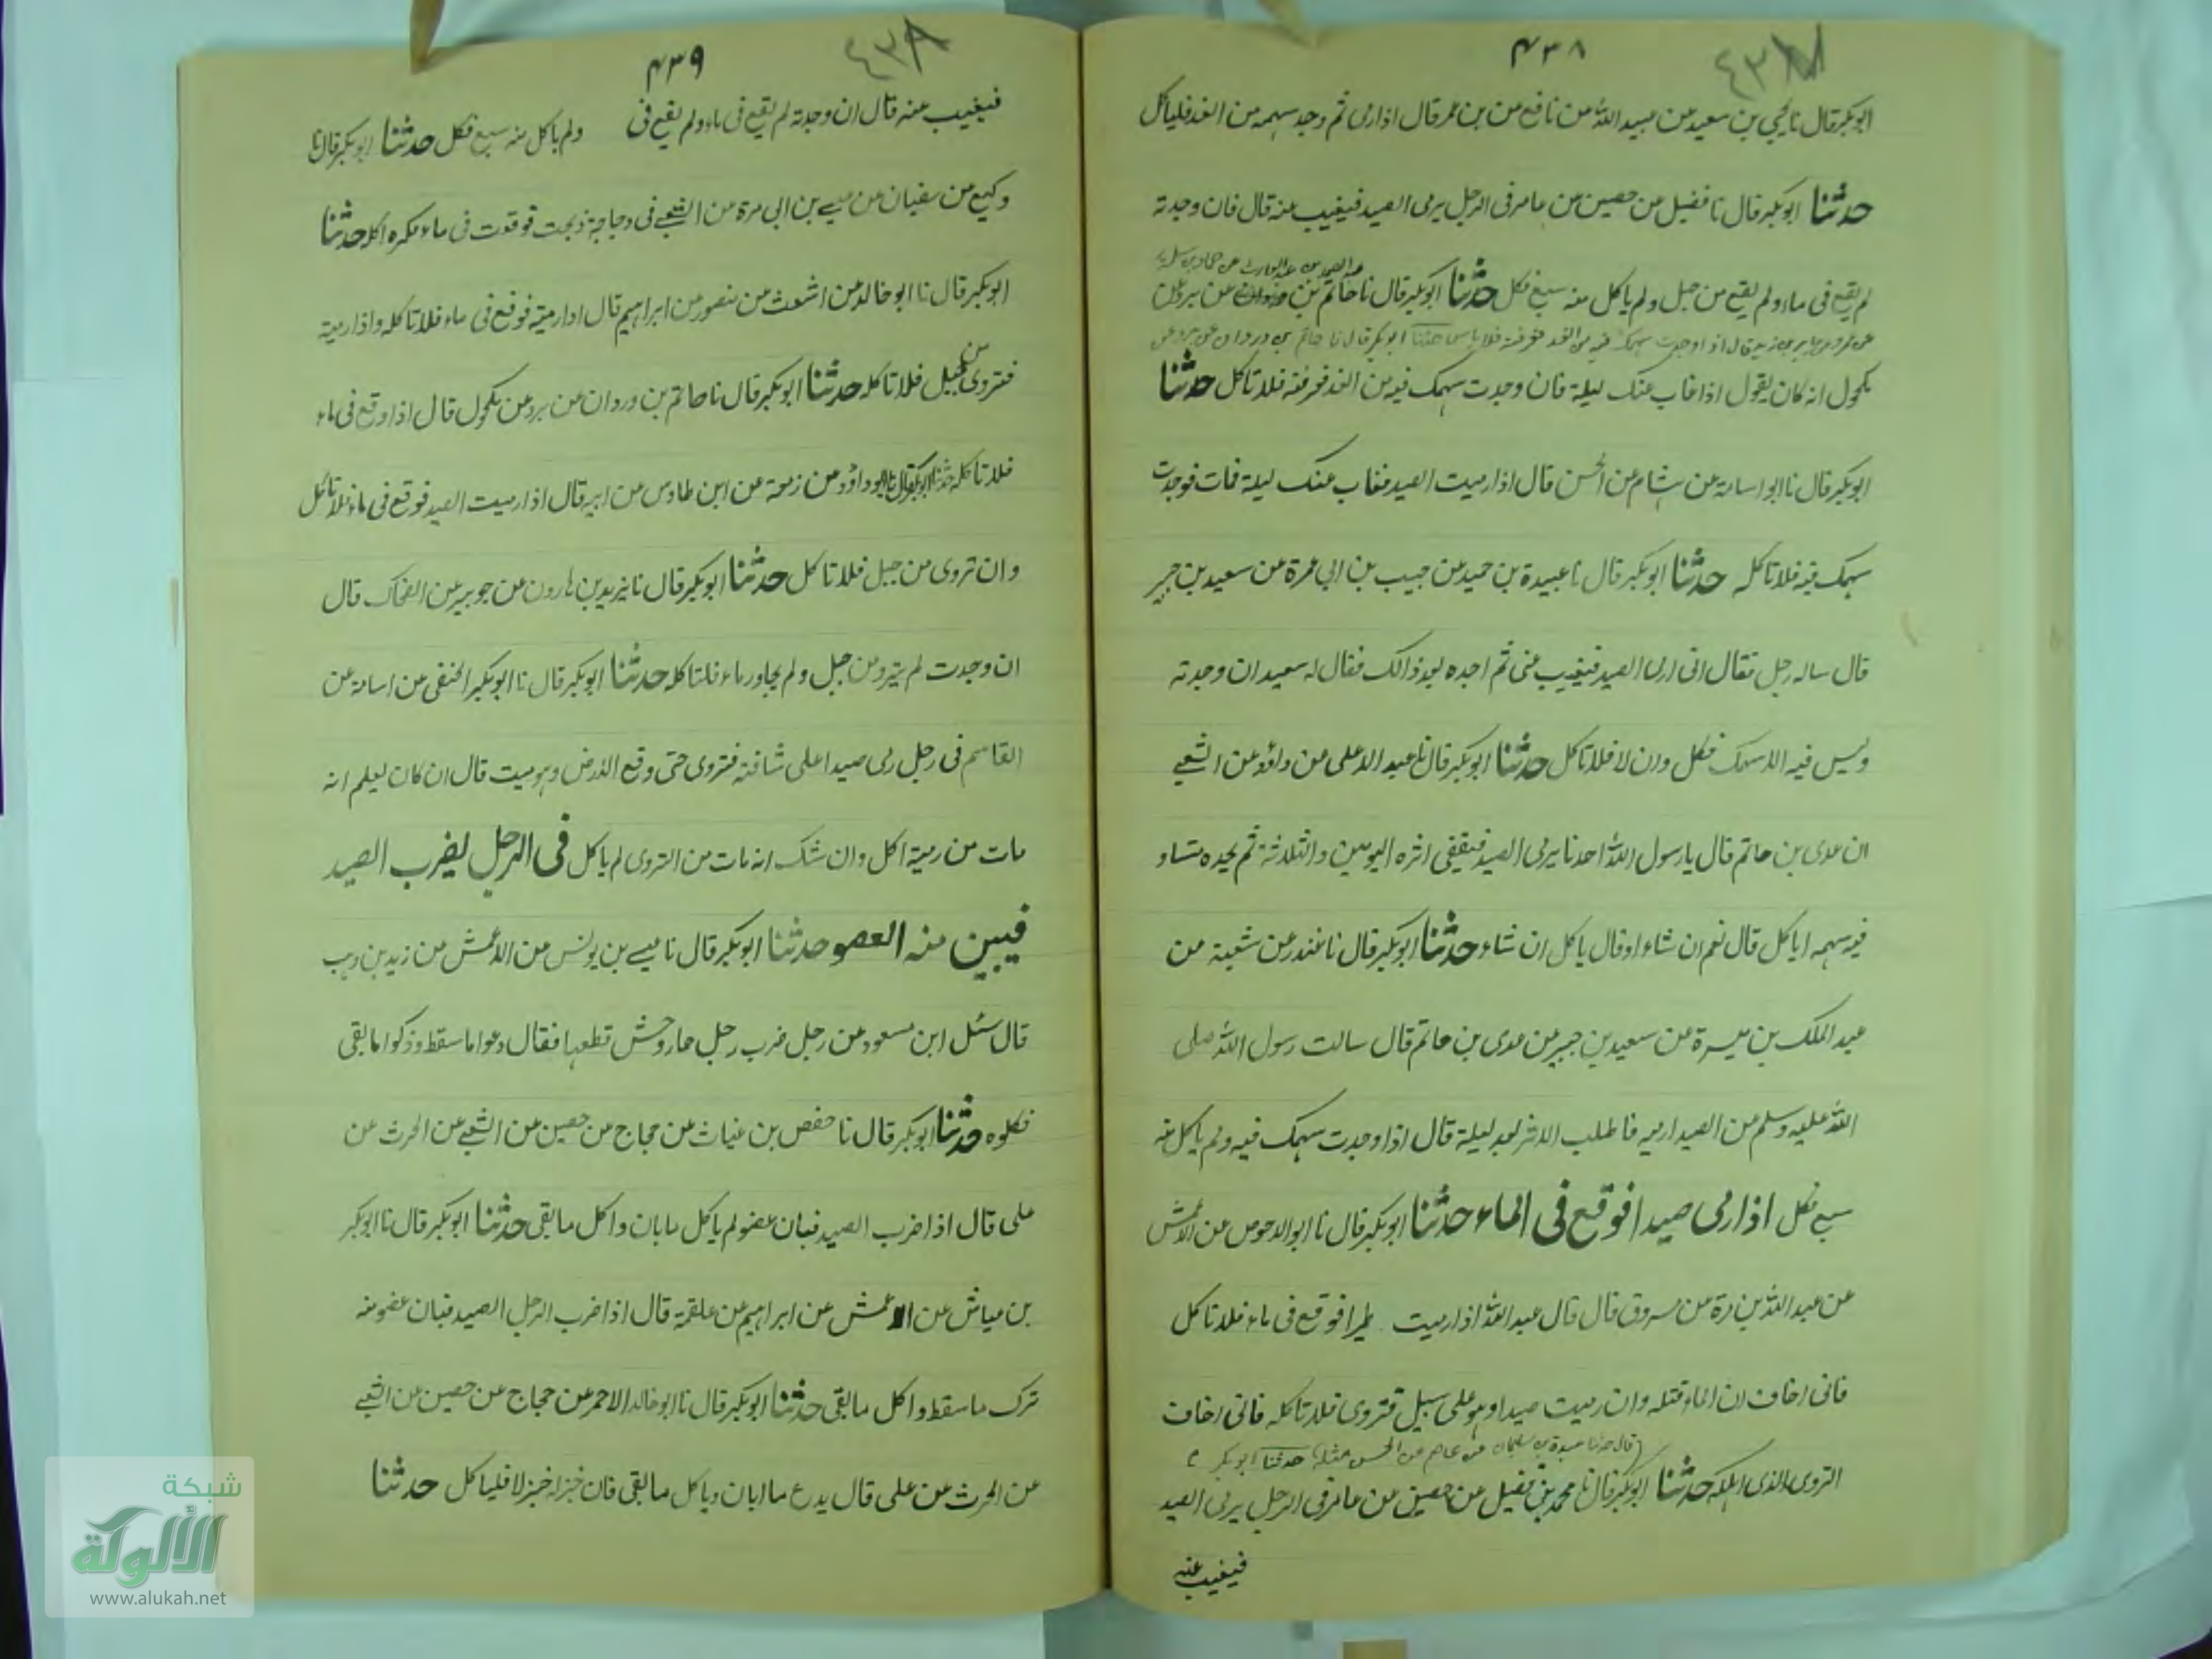 ٤٣٨
ابوبكر قال نا يحيي بن سعيد عن عبيد الله عن نافع عن بن عمر قال اذا رمى ثم وجد سهمه من الغد فلياكل
حدثنا ابوبكر قال نا فضيل عن حصين عن عامر فى الرجل يرمى الصيد فيغيب عنه قال فان وجدته
لم يقع فى ماء ولم يقع من جبل ولم ياكل منه سبع فكل حدثنا ابوبكر قال نا حاتم بن
عبد الصمد بن عبد الوارث عن حماد بن سلمة
مكحول انه كان يقول اذا غاب عنك ليلة فان وجدت سهمك فيه من الغد فعرفته فلا تاكل حدثنا
ابوبكر قال نا ابو اسامة عن هشام عن الحسن قال اذا رميت الصيد فغاب عنك ليلة فمات فوجدت
سهمك فيه فلا تاكله حدثنا ابوبكر قال نا عبيدة بن حميد عن حبيب بن ابى عمرة عن سعيد بن جبير
قال ساله رجل فقال انى ارمى الصيد فيغيب عنى ثم اجده بعد ذالك فقال له سعيد ان وجدته
وليس فيه الا سهمك فكل وان لا فلا تاكل حدثنا ابوبكر قال نا عبد الاعلى عن داؤد عن الشعبے
ان عدى بن حاتم قال يا رسول الله احدنا يرمى الصيد فيقفى اثره اليومين والثلاثة ثم يجده ميتا و
فيه سهمه اياكل قال نعم ان شاء او قال ياكل ان شاء حدثنا ابوبكر قال نا غندر عن شعبة عن
عبد الملك بن ميسرة عن سعيد بن جبير عن عدى بن حاتم قال سالت رسول الله صلى
الله عليه وسلم عن الصيد ارميه فاطلب الاثر بعد ليلة قال اذا وجدت سهمك فيه ولم ياكل منه
سبع فكل اذا رمى صيدا فوقع فى الماء حدثنا ابوبكر قال نا ابو الاحوص عن الاعمش
عن عبد الله بن مرة عن مسروق قال قال عبد الله اذا رميت طيرا فوقع فى ماء فلا تاكل
فانى اخاف ان الماء قتله وان رميت صيدا وهو على جبل فتردى فلا تاكله فانى اخاف
(قال حدثنا عبدة بن سليمان عن عاصم عن الحسن مثله) حدثنا ابوبكر
التردى الذى اهلكه حدثنا ابوبكر قال نا محمد بن فضيل عن حصين عن عامر فى الرجل يرمى الصيد
فيغيب عنه
٤٣٩
فيغيب عنه قال ان وجدته لم يقع فى ماء ولم يقع فى ولم ياكل منه سبع فكل حدثنا ابوبكر قال نا
وكيع عن سفيان عن عيسے بن ابى عزة عن الشعبے فى دجاجة ذبحت فوقعت فى ماء فكره اكله حدثنا
ابوبكر قال نا ابو خالد عن اشعث عن منصور عن ابراهيم قال اذا رميته فوقع فى ماء فلا تاكله واذا رميته
فتردى من جبل فلا تاكله حدثنا ابوبكر قال نا حاتم بن وردان عن برد عن مكحول قال اذا وقع فى ماء
فلا تاكله حدثنا ابوبكر قال نا ابو داؤد عن زمعة عن ابن طاوس عن ابيه قال اذا رميت الصيد فوقع فى ماء فلا تاكل
وان تردى من جبل فلا تاكل حدثنا ابوبكر قال نا يزيد بن هارون عن جويبر عن الضحاك قال
ان وجدت لم يتردى من جبل ولم يجاور ماء فلتاكله حدثنا ابوبكر قال نا ابوبكر الحنفى عن اسامة عن
القاسم فى رجل رمى صيدا على شاهقة فتردى حتى وقع الارض وهو ميت قال ان كان يعلم انه
مات من رميته اكل وان شك انه مات من التردى لم ياكل فى الرجل يضرب الصيد
فيبين منه العضو حدثنا ابوبكر قال نا عيسے بن يونس عن الاعمش عن زيد بن وهب
قال سئل ابن مسعود عن رجل ضرب رجل حمار وحش فقطعها فقال دعوا ما سقط وذكوا ما بقى
فكلوه حدثنا ابوبكر قال نا حفص بن غياث عن حجاج عن حصين عن الشعبے عن الحرث عن
على قال اذا ضرب الصيد فبان عضو لم ياكل ما بان واكل ما بقى حدثنا ابوبكر قال نا ابوبكر
بن عياش عن الاعمش عن ابراهيم عن علقمة قال اذا ضرب الرجل الصيد فبان عضو منه
ترك ما سقط واكل ما بقى حدثنا ابوبكر قال نا ابو خالد الاحمر عن حجاج عن حصين عن الشعبے
عن الحرث عن على قال يدع ما ابان وياكل ما بقى فان جزاه جزلا فلياكل حدثنا
شبكة
الألوكة
www.alukah.net